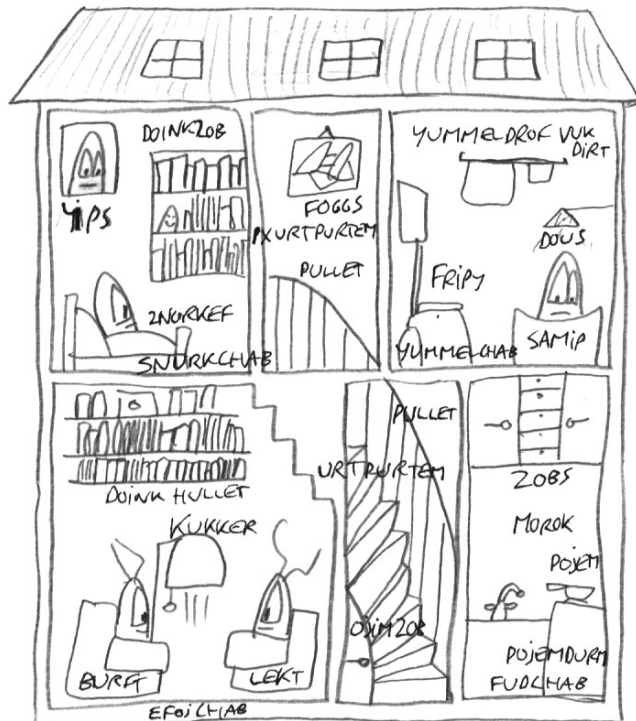 DOINKZOB
YIPS
ZNURKEF
SNURKCHAB
FOGGS
PXURTPURTEM
PULLET
YUMMELDROF VUK
DIRT
DOUS
FRIPY
SAMIP
YUMMELCHAB
DOINK HULLET
KUKKER
BURFT
LEKT
EFOICHAB
PULLET
URTPURTEM
OJIMZOB
ZOBS
MOROK
POJEM
POJEMDURM
FUDLHAB